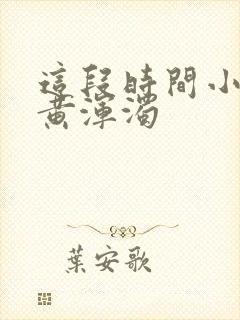 這段時間小
黃渾濁
葉安歌